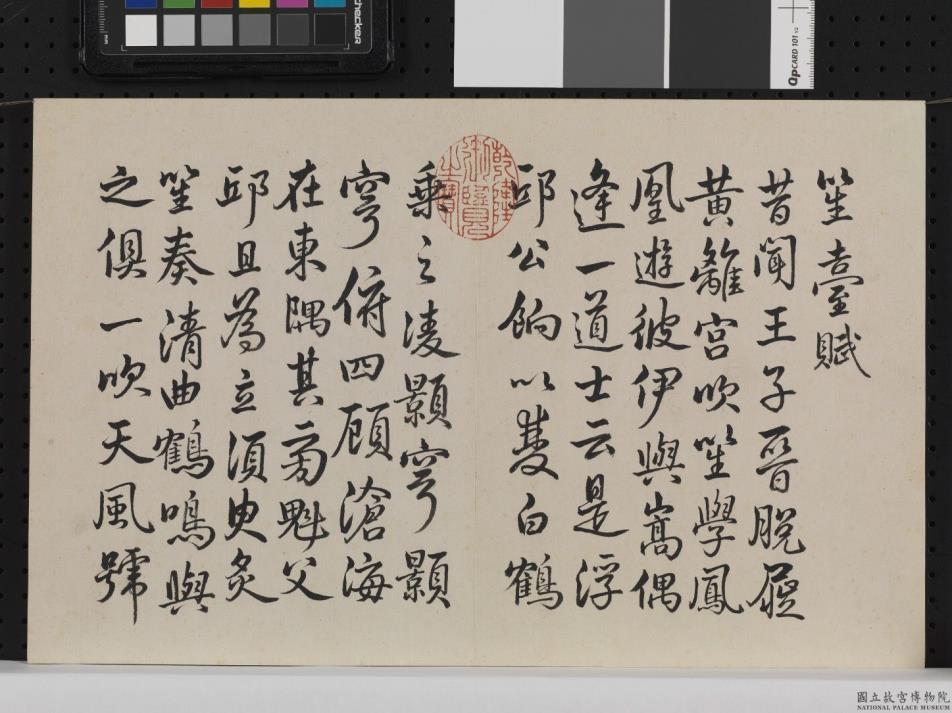 笙臺賦
昔聞王子晉脫屣
黃離宮吹笙學鳳
凰遊彼伊與嵩偶
逢一道士云是浮
邱公餉以雙白鶴
乘之凌顥穹顥
穹俯四顧滄海
在東隅其旁魁父
邱且為立須臾炙
笙奏清曲鶴鳴與
之俱一吹天風號
乾隆御覽之寶
checker
QPCARD 101 v2
國立故宮博物院
NATIONAL PALACE MUSEUM